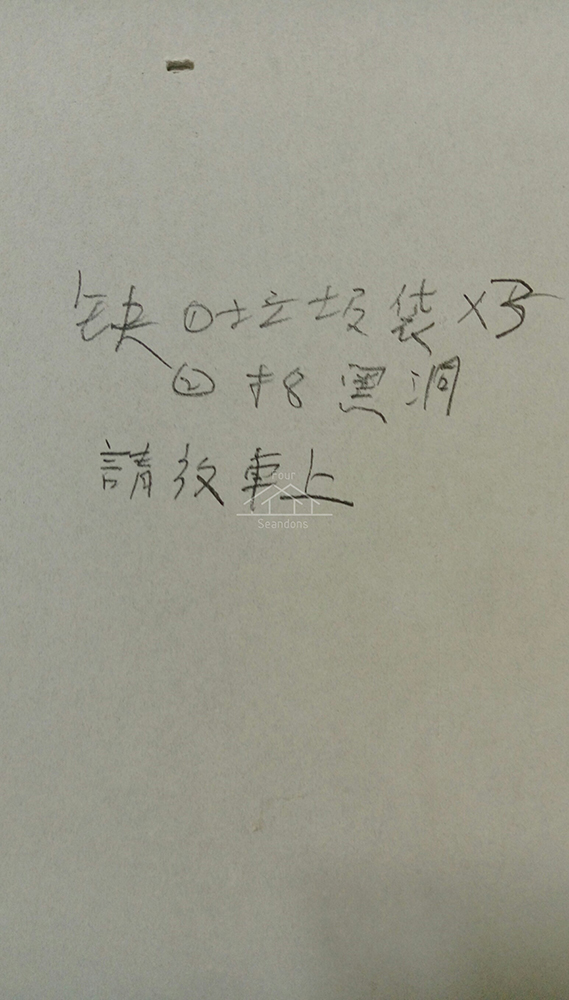 缺 ①垃圾袋×3
② #8 黑洞
請放車上
Four
Seandons